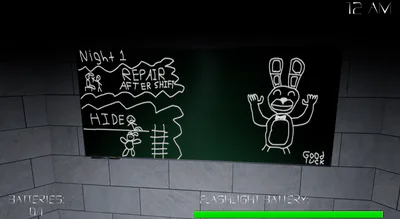 12 AM
Night 1
REPAIR
AFTER SHIFT
HIDE
GOOD
LUCK
BATTERIES:
0/4
FLASHLIGHT BATTERY: